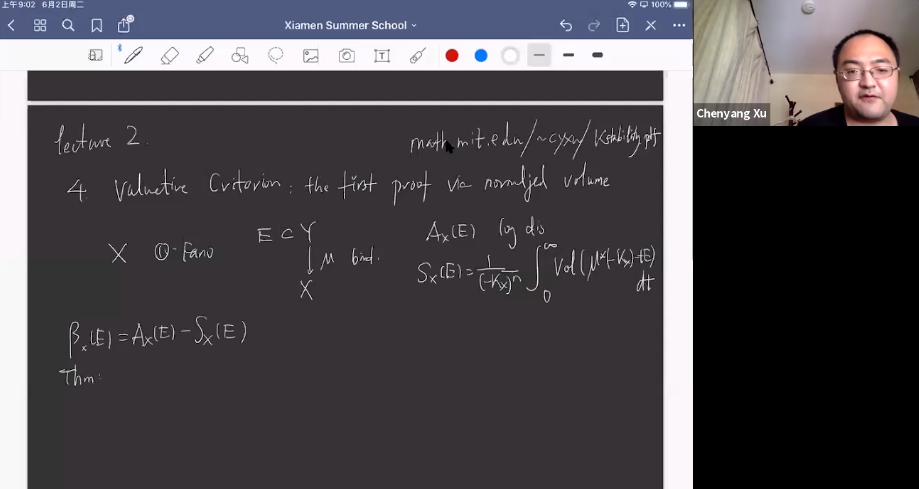 上午9:02 6月2日周二
100%
Xiamen Summer School
Chenyang Xu
lecture 2
math.mit.edu/~cyxu/Kstability.pdf
4. Valuative Criterion: the first proof via normalized volume
X Q-Fano E ⊂ Y ↓ μ bird. X
A_X(E) log dis
S_X(E) = 1/(-K_X)^n ∫_0^∞ Vol(μ*(-K_X)-tE) dt
β_X(E) = A_X(E) - S_X(E)
Thm: